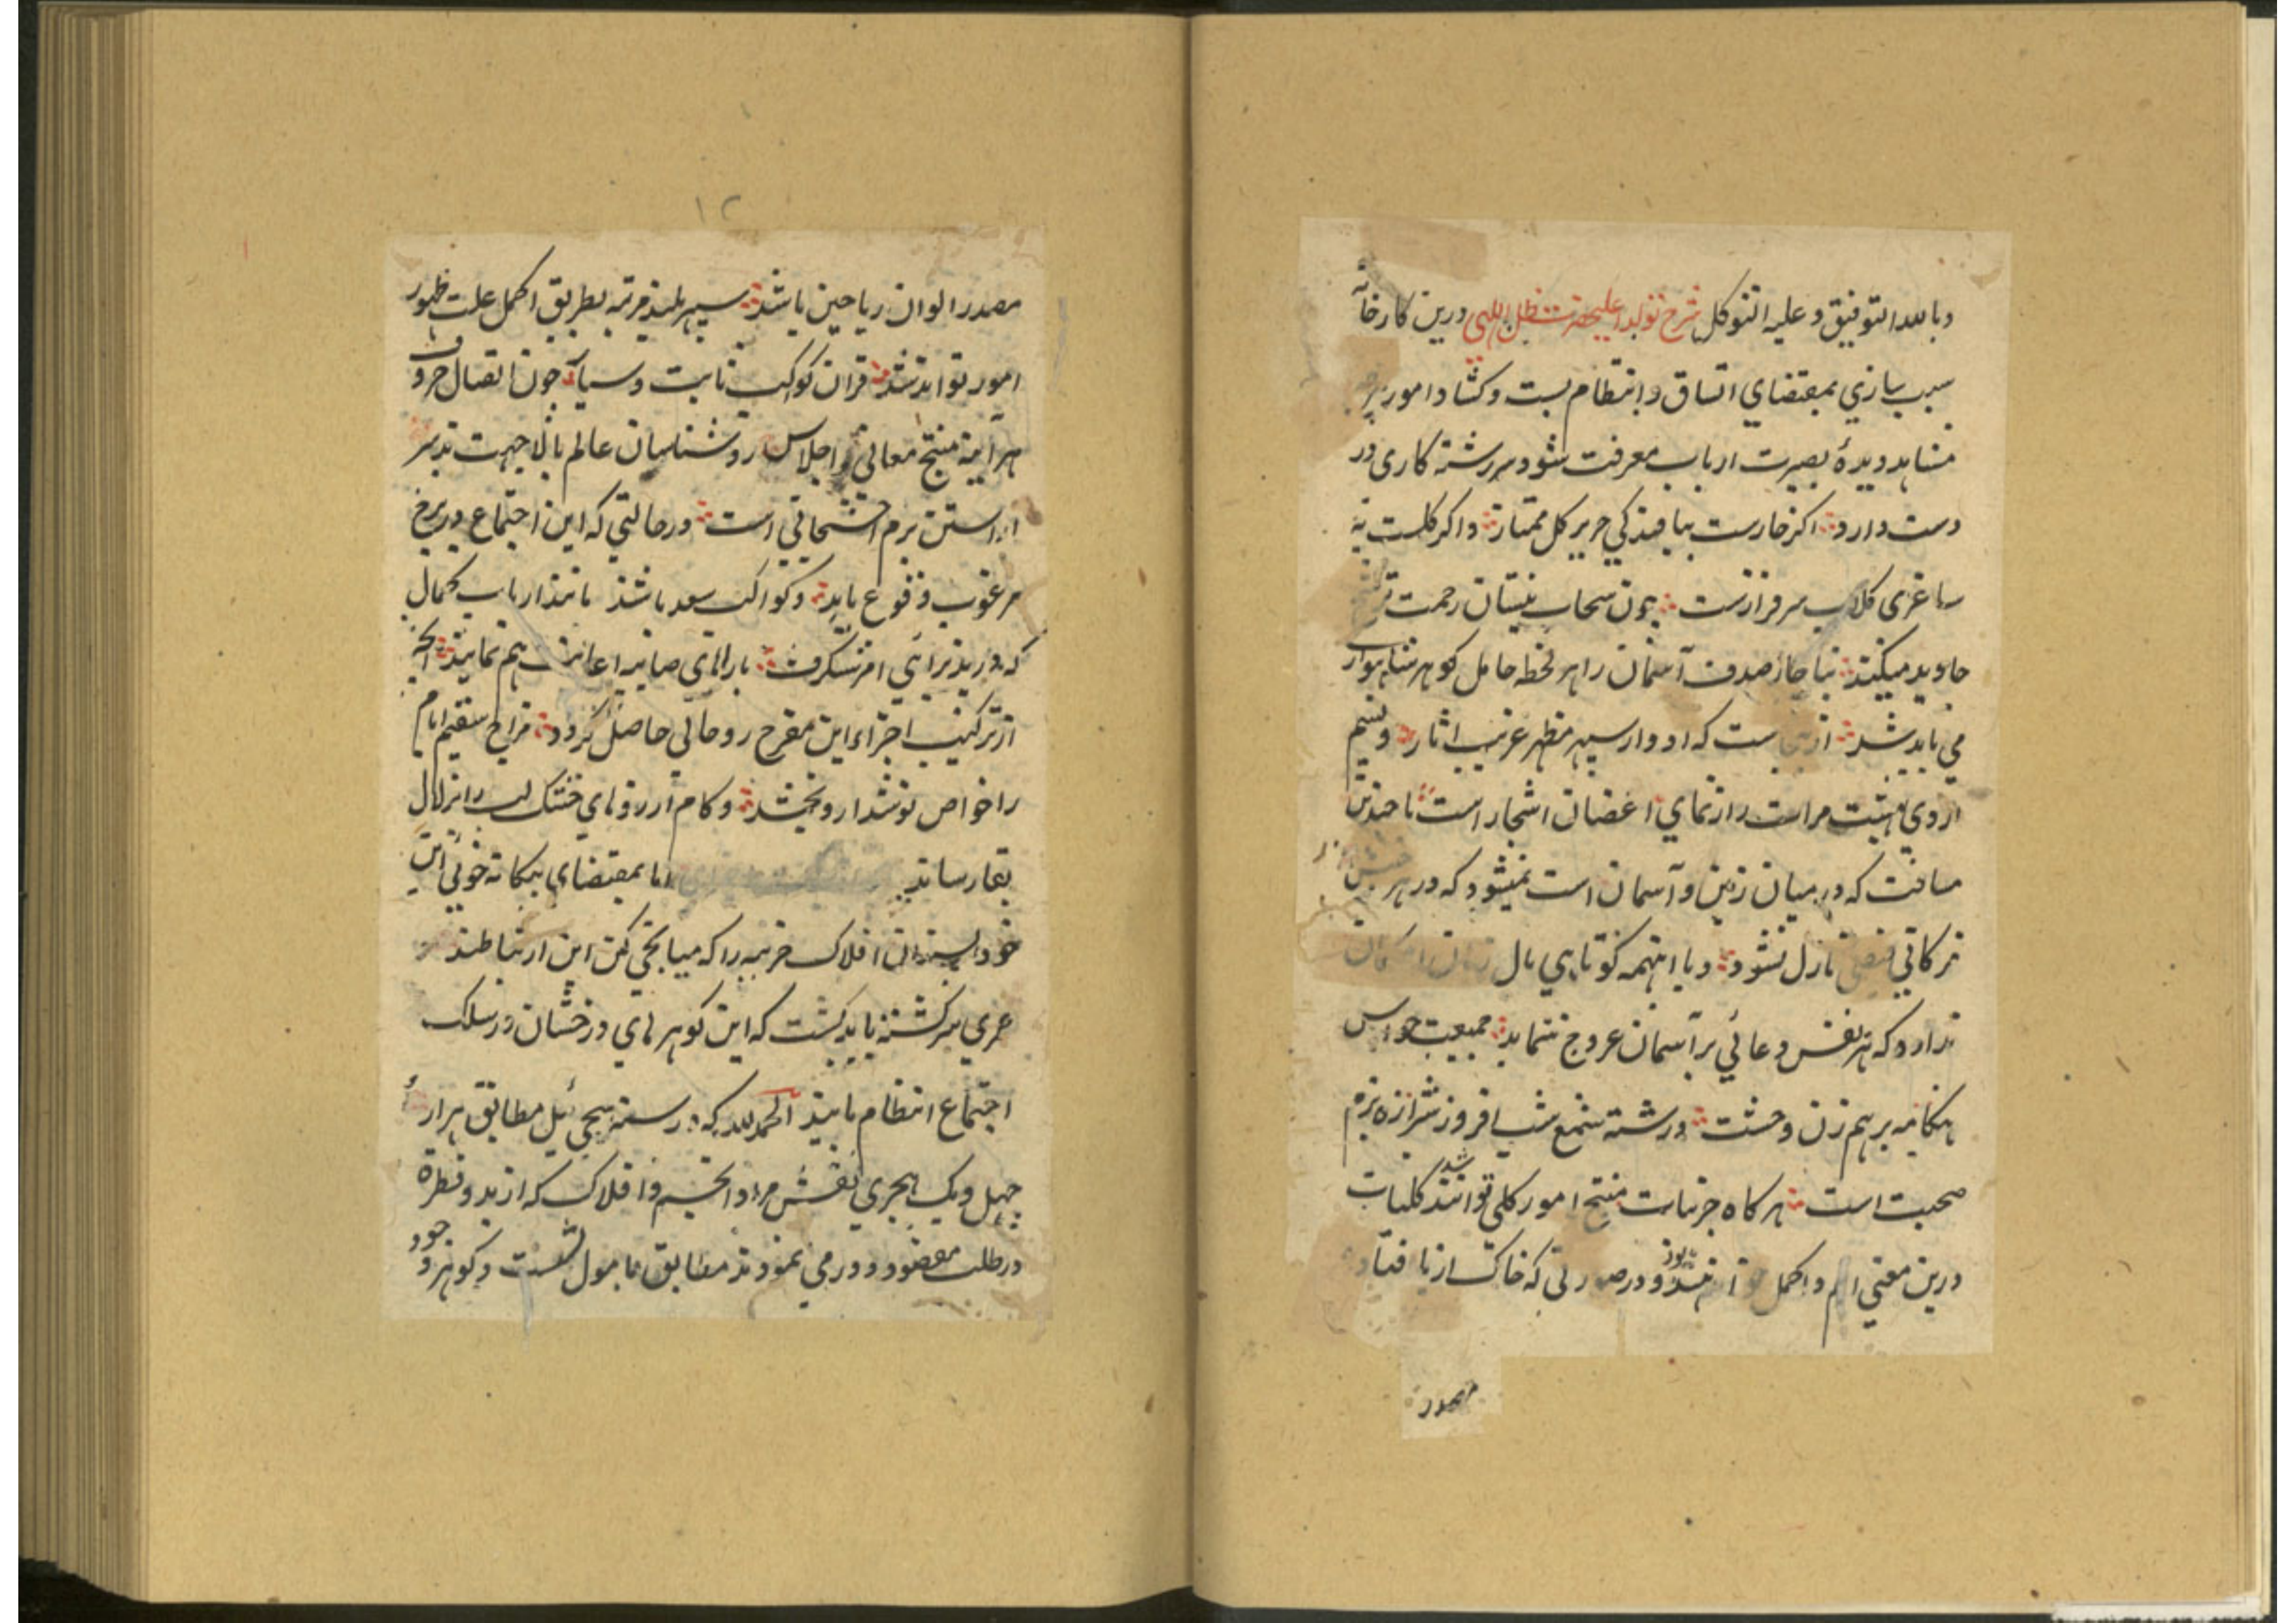 وبالله التوفيق و عليه التوكل شرح تولد اعليحضرت ظل اللهی درين كارخانه
سبب سازي بمقتضاي اتساق وانتظام بست وكشاد امور
مشاهد ديدهٔ بصيرت ارباب معرفت شود سررشته كاری در
دست دارد اكر خارست ببافندكي حرير كل ممتاز واكر كلست به
ساغری كلاب سرفرازست چون سحاب نيسان رحمت
جاويد ميكند بناچار صدف آسمان را هر لحظه حامل كوهر شاهوار
مي بايد شد ست كه ادوار سپهر مظهر غريب اثار ونسيم
از وي است راز نماي اغصان اشجار است با چندين
مسافت كه در ميان زمين و آسمان است نميشود كه در هر
بركاتي نازل نشود وبا اينهمه كوتاهي بال
ندارد كه هر نفس دعائي بر آسمان عروج ننمايد جمعيت حواس
هنكامه برهم زن وحشت ورشته شمع شب افروز شيرازه بزم
صحبت است هر كاه جزئيات منتج امور كلي توانند شد كليات
درين معني اتم واكمل ودر صورتی كه خاك از پا افتاده
مصدر
١٢
مصدر الوان رياحين باشد سپهر بلند مرتبه بطريق اكمل علت ظهور
امور تواند شد قران كواكب ثابت وسياره چون اتصال حروف
هر آينه منتج معاني و اجلاس روشناسان عالم بالا جهت تدبير
اراستن بزم است در حالتي كه اين اجتماع در برج
مرغوب وقوع يابد وكواكب سعد باشند مانند ارباب كمال
كه در پذيرائي امر شكرف باراهاي صايبه اعانت هم نمايند انچه
از تركيب اجزاء اين مفرح روحاني حاصل كردد مزاج سقيم ايام
را خواص نوشدارو بخشد وكام آرزوهاي خشك لب را بزلال
بقا رساند اما بمقتضاي بيكانه خوئي اين
خود پسندان افلاك مرتبه را كه ميانجي كن اين ارتباطند
عمري سركشته بايد كشت كه اين كوهرهاي درخشان در سلك
اجتماع انتظام يابند الحمدلله كه در سنه ئيل مطابق هزار و
چهل ويك هجري نقش مراد انجم وافلاك كه از بدو فطرة
در طلب مقصود دور مي نمودند مطابق مامول نشست وكوهر وجود